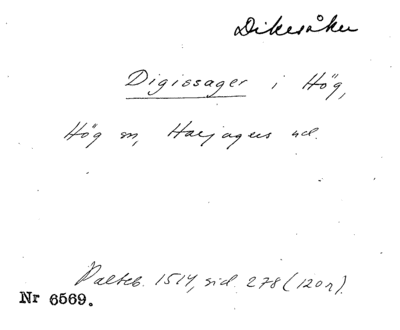 Dikesåker
Digissager i Hög,
Hög sn, Harjagers hd.
Palteb. 1514, sid 278 (120r).
Nr 6569.